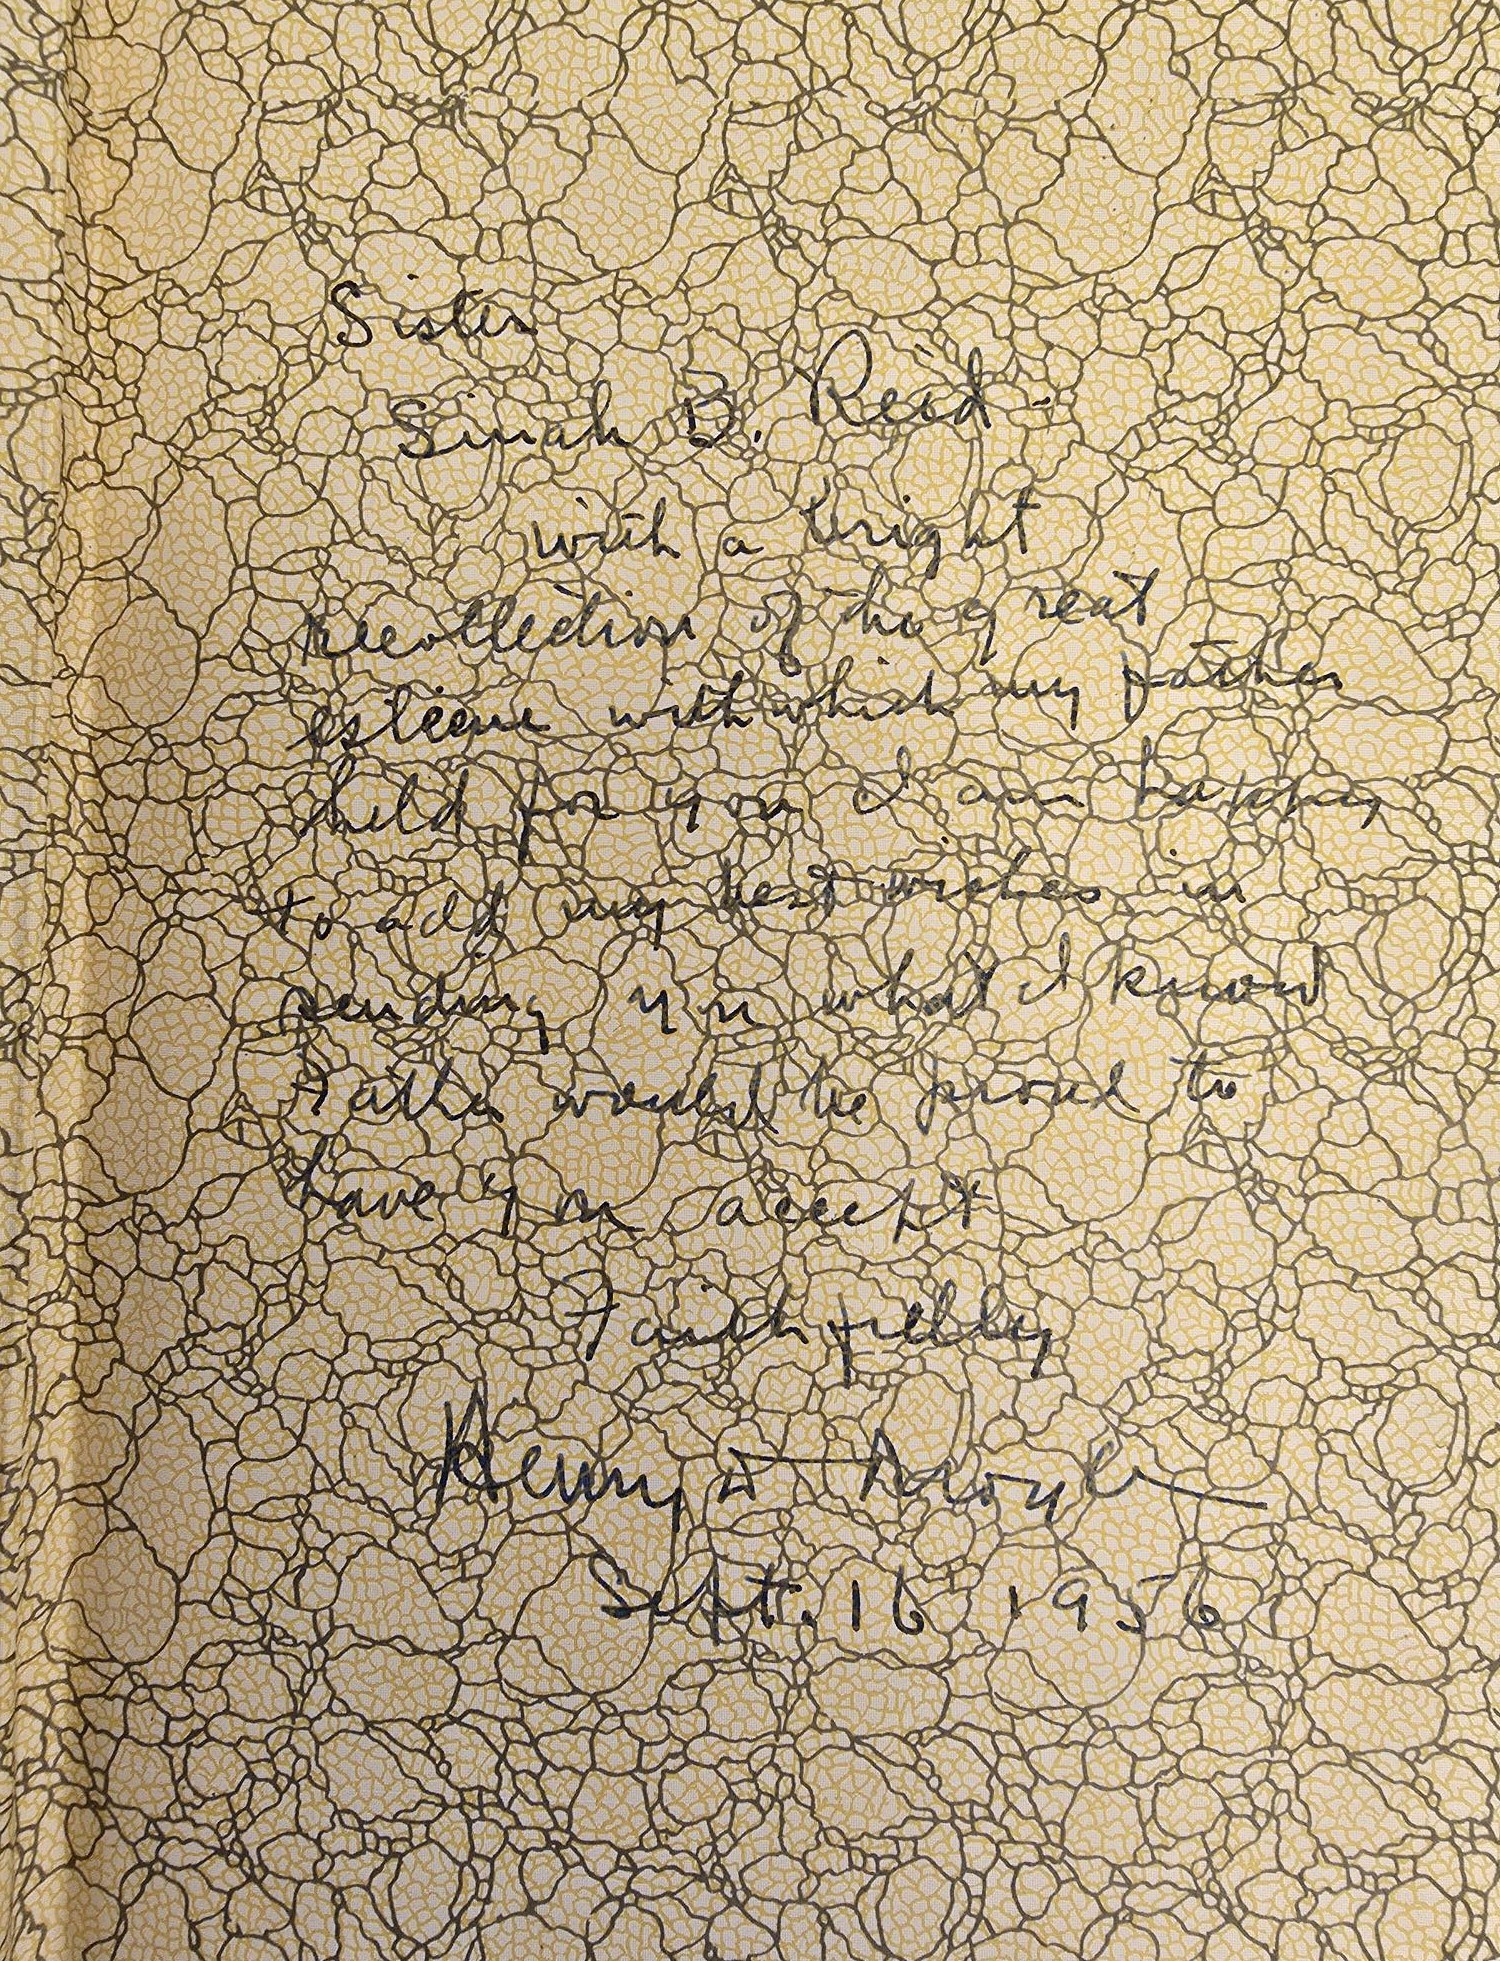 Sister
Sinah B. Reid -
with a bright
recollection of the great
esteem with which my father
held for you I am happy
to add my best wishes in
sending you what I know
Father would be proud to
have you accept
Faithfully
Henry D Moyle
Sept. 16 1956